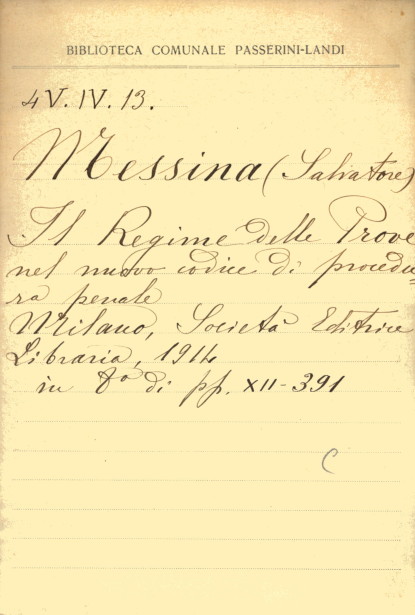 BIBLIOTECA COMUNALE PASSERINI-LANDI
4V.IV.13.
Messina (Salvatore)
Il Regime delle Prove
nel nuovo codice di procedu-
ra penale
Milano, Società Editrice
Libraria, 1914
in 8° di pp. XII-391
C